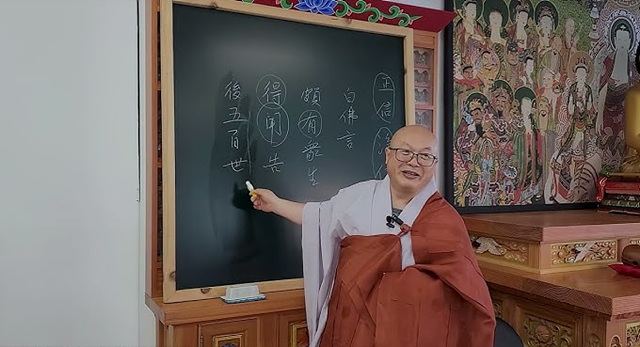 正信
白佛言
頗有衆生
得 告
後五百世